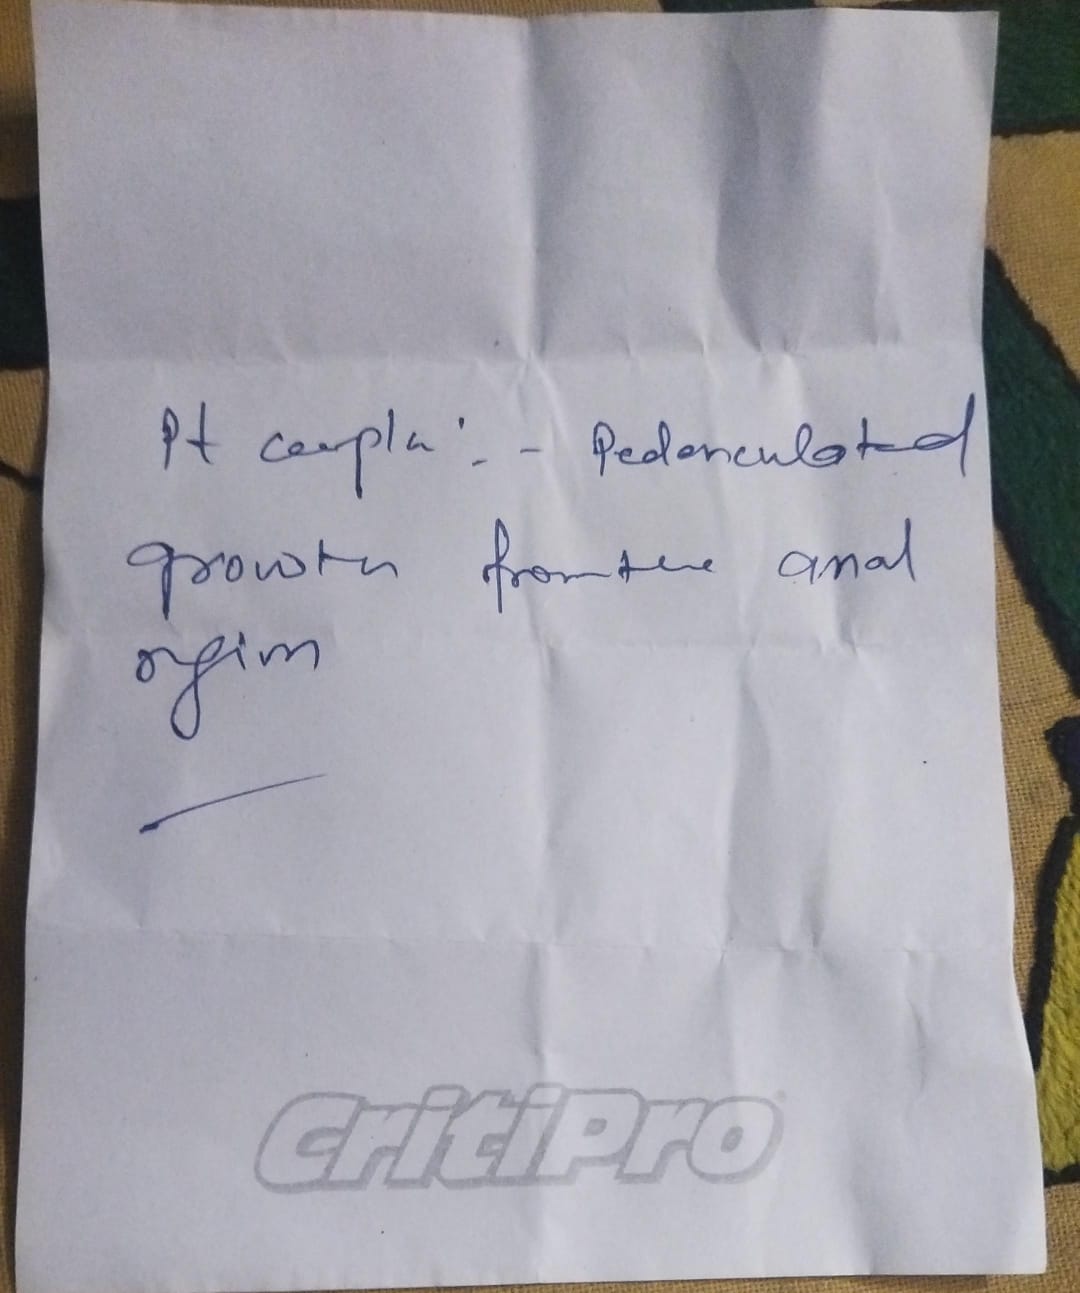 Pt compla:- Pedunculated
growth from the anal
region
CritiPro